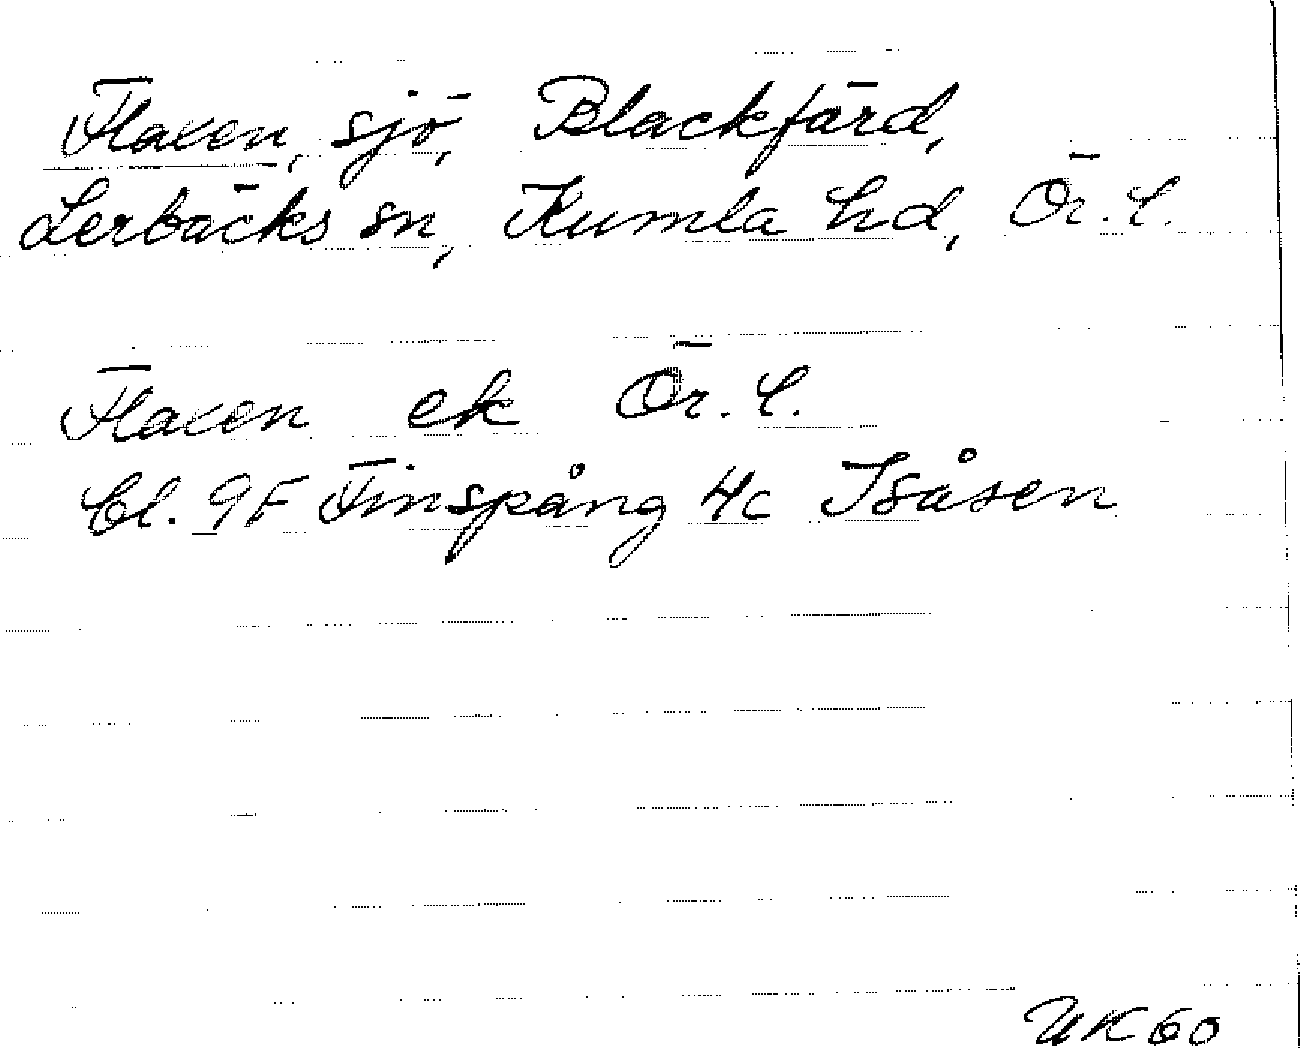 Flaxen, sjö, Blackfärd,
Lerbäcks sn, Kumla hd, Ör. l.
Flaxen ek Ör. l.
bl. 9F Finspång 4c Isåsen
UK60